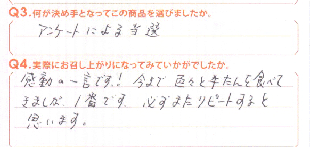 Q3.何が決め手となってこの商品を選びましたか。
アンケートによる当選
Q4.実際にお召し上がりになってみていかがでしたか。
感動の一言です!今まで色々と牛たんを食べて
きましたが、1番です。必ずまたリピートすると
思います。